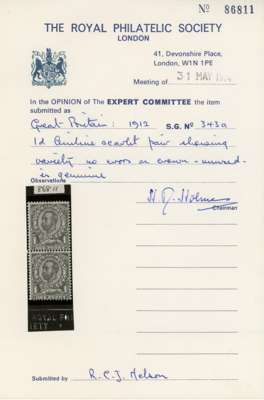 No 86811
THE ROYAL PHILATELIC SOCIETY
LONDON
41, Devonshire Place,
London, W1N 1PE
Meeting of 31 MAY
In the OPINION of The EXPERT COMMITTEE the item
submitted as
Great Britain: 1912 S.G. No 343a
1d aniline scarlet pair showing
variety no cross on crown - unused -
is genuine
Observations
86811
Chairman
ROYAL PHI
IETY
Submitted by R.C.J. Nelson